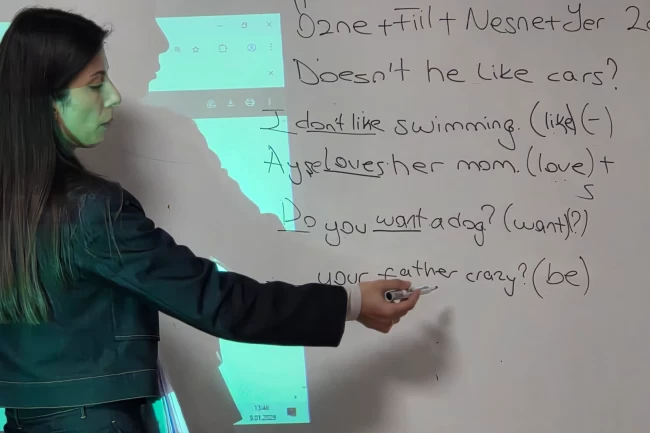 Özne + Fiil + Nesne + Yer
Doesn't he like cars?
I don't like swimming. (like) (-)
Ayşe Loves her mom. (love) +
s
Do you want a dog? (want) (?)
your father crazy? (be)
13:48
5.01.2025